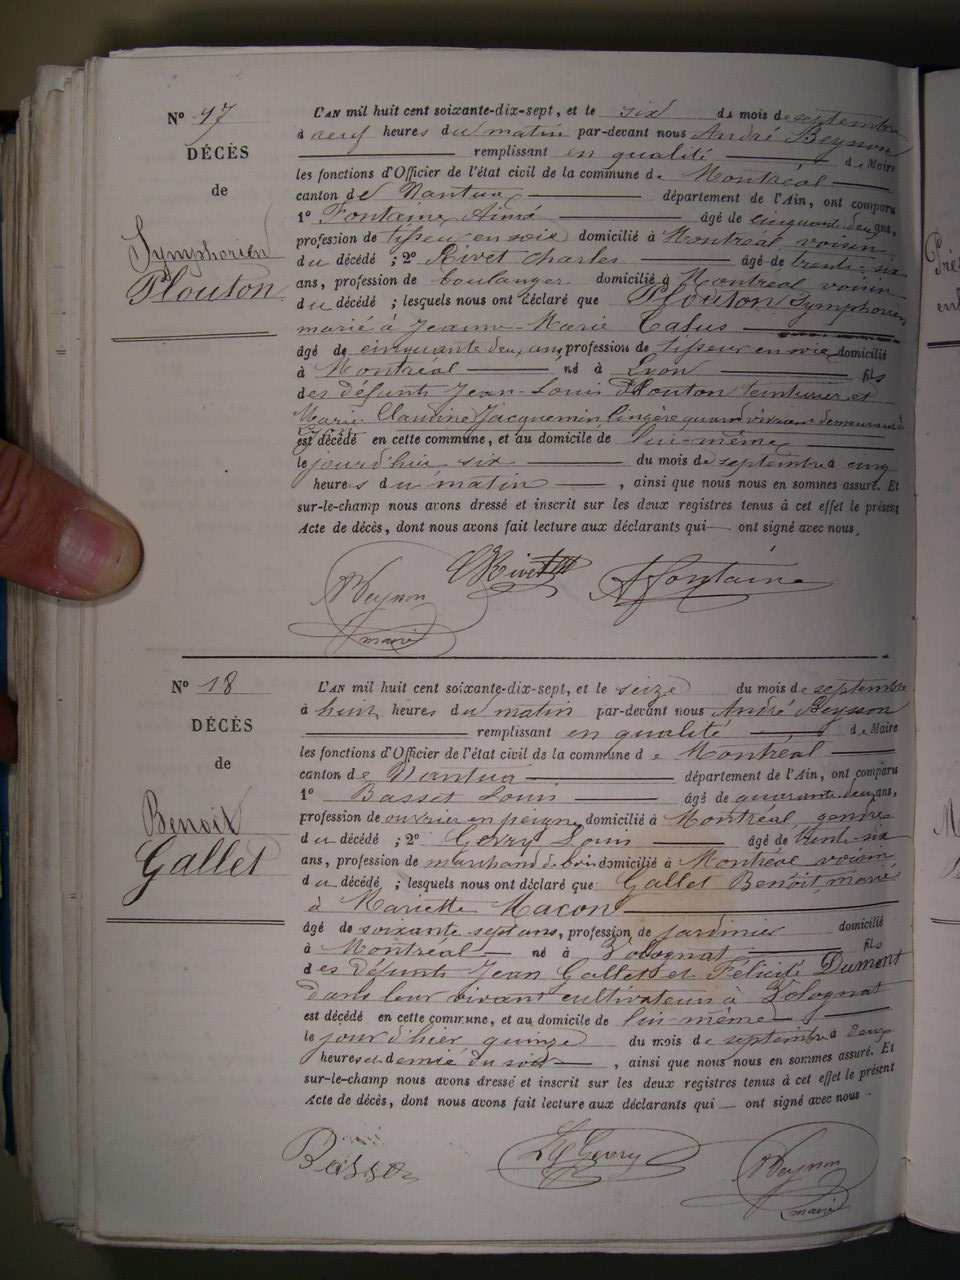 N° 17
DÉCÈS
de
Symphorien
Plouton
L'AN mil huit cent soixante-dix-sept, et le six du mois de septembre
à neuf heures du matin par-devant nous André Beynon
remplissant en qualité de Maire
les fonctions d'Officier de l'état civil de la commune de Montréal
canton de Nantua département de l'Ain, ont comparu
1° Fontaine Aimé âgé de cinquante deux ans,
profession de tisseur en soie domicilié à Montréal voisin
du décédé ; 2° Rivet Charles âgé de trente-six
ans, profession de boulanger domicilié à Montréal voisin
du décédé ; lesquels nous ont déclaré que Plouton Symphorien
marié à Jeanne-Marie Calus
âgé de cinquante deux ans, profession de tisseur en soie domicilié
à Montréal né à Lyon fils
des défunts Jean-Louis Plouton teinturier et
Marie Claudine Jacquemin lingère quand vivaient demeurant à
est décédé en cette commune, et au domicile de lui-même
le jourd'hui six du mois de septembre à cinq
heures du matin , ainsi que nous nous en sommes assuré. Et
sur-le-champ nous avons dressé et inscrit sur les deux registres tenus à cet effet le présent
Acte de décès, dont nous avons fait lecture aux déclarants qui ont signé avec nous.
A Beynon Rivet A Fontaine
maire
N° 18
DÉCÈS
de
Benoit
Gallet
L'AN mil huit cent soixante-dix-sept, et le seize du mois de septembre
à huit heures du matin par-devant nous André Beynon
remplissant en qualité de Maire
les fonctions d'Officier de l'état civil de la commune de Montréal
canton de Nantua département de l'Ain, ont comparu
1° Basset Louis âgé de quarante deux ans,
profession de ouvrier en peigne domicilié à Montréal gendre
du décédé ; 2° Gevry Louis âgé de trente-six
ans, profession de marchand de bois domicilié à Montréal voisin
du décédé ; lesquels nous ont déclaré que Gallet Benoit marié
à Mariette Macon
âgé de soixante sept ans, profession de jardinier domicilié
à Montréal né à Volognat fils
des défunts Jean Gallet et Félicité Dumont
dans leur vivant cultivateurs à Volognat
est décédé en cette commune, et au domicile de lui-même
le jour d'hier quinze du mois de septembre à
heures et demie du soir , ainsi que nous nous en sommes assuré. Et
sur-le-champ nous avons dressé et inscrit sur les deux registres tenus à cet effet le présent
Acte de décès, dont nous avons fait lecture aux déclarants qui ont signé avec nous.
Basset Gevry A Beynon
maire